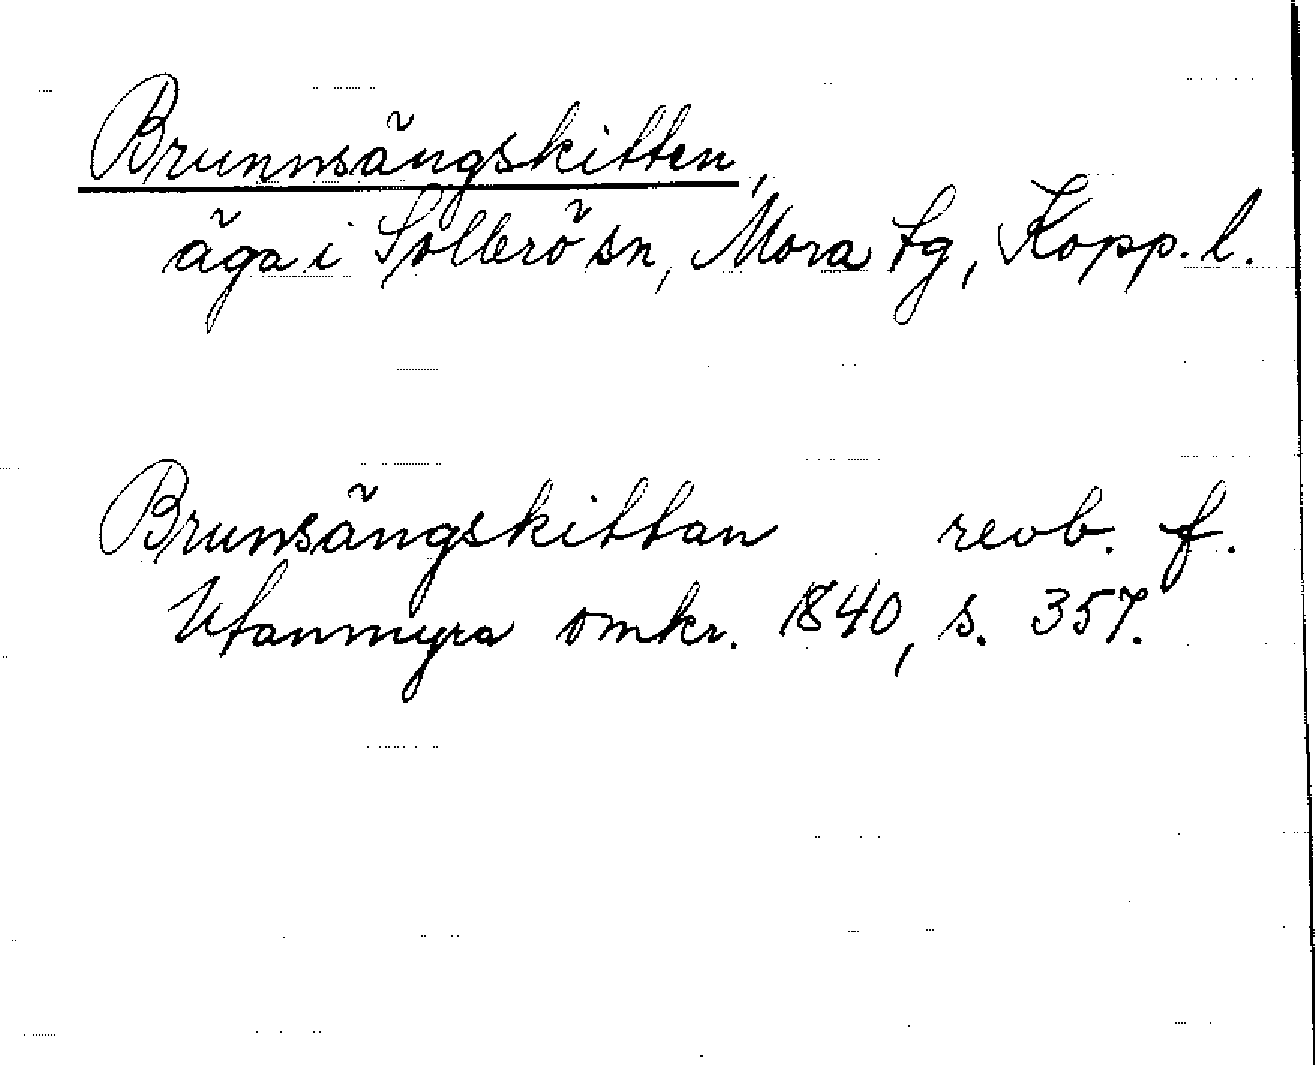 Brunnsängskitten,
äga i Sollerö sn, Mora tg, Kopp. l.
Brunsängskittan revb. f.
Utanmyra omkr. 1840, s. 357.